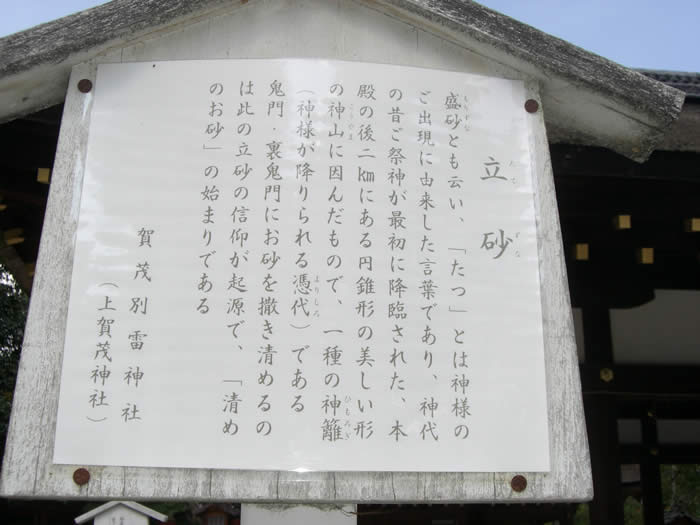 立砂
たてずな
盛砂とも云い、「たつ」とは神様の
もりずな
ご出現に由来した言葉であり、神代
の昔ご祭神が最初に降臨された、本
殿の後二kmにある円錐形の美しい形
の神山に因んだもので、一種の神籬
こうやま
ひもろぎ
(神様が降りられる憑代)である
よりしろ
鬼門・裏鬼門にお砂を撒き清めるの
は此の立砂の信仰が起源で、「清め
のお砂」の始まりである
賀茂別雷神社
(上賀茂神社)